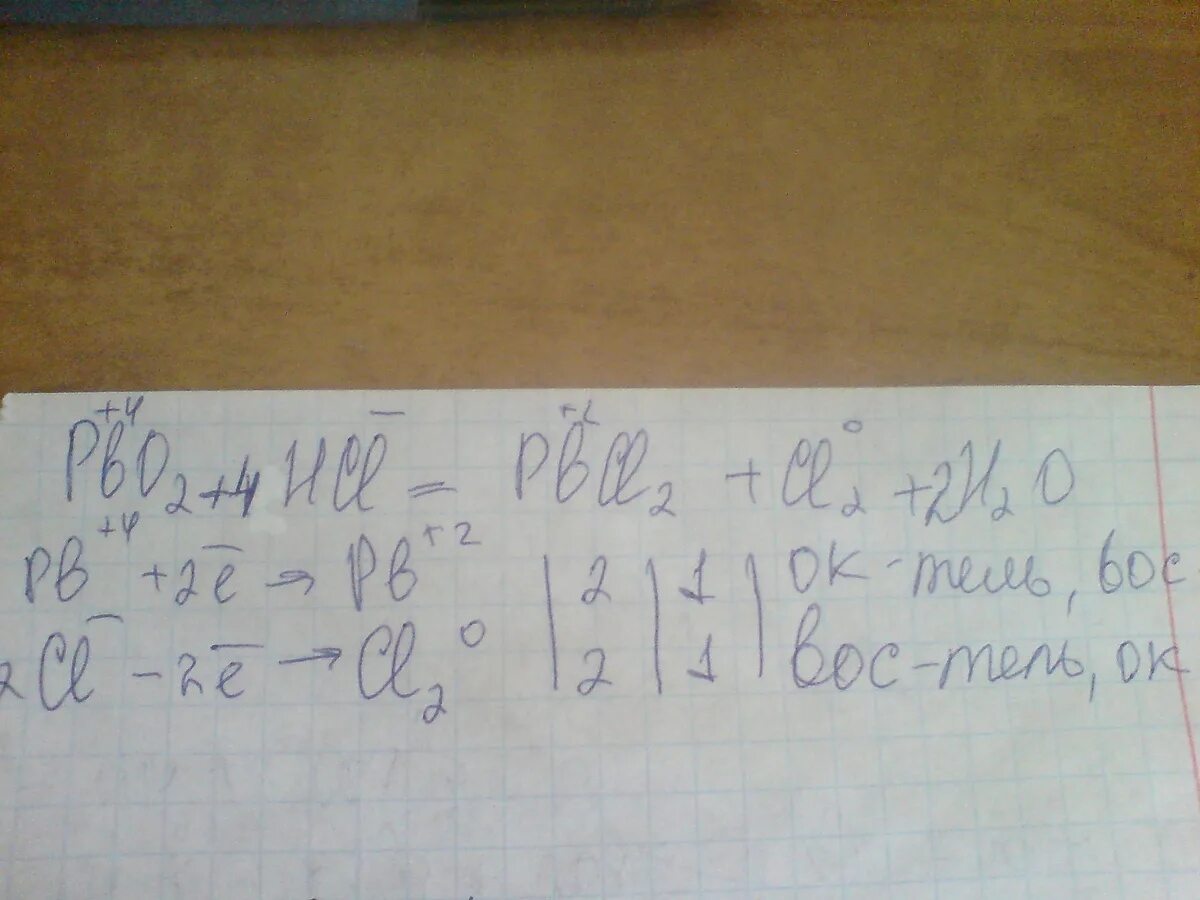 Pb⁺⁴O₂ + 4HCl⁻ = Pb⁺²Cl₂ + Cl₂⁰ + 2H₂O
Pb⁺⁴ + 2e̅ → Pb⁺² | 2 | 1 | ок-тель, вос
2Cl⁻ - 2e̅ → Cl₂⁰ | 2 | 1 | вос-тель, ок